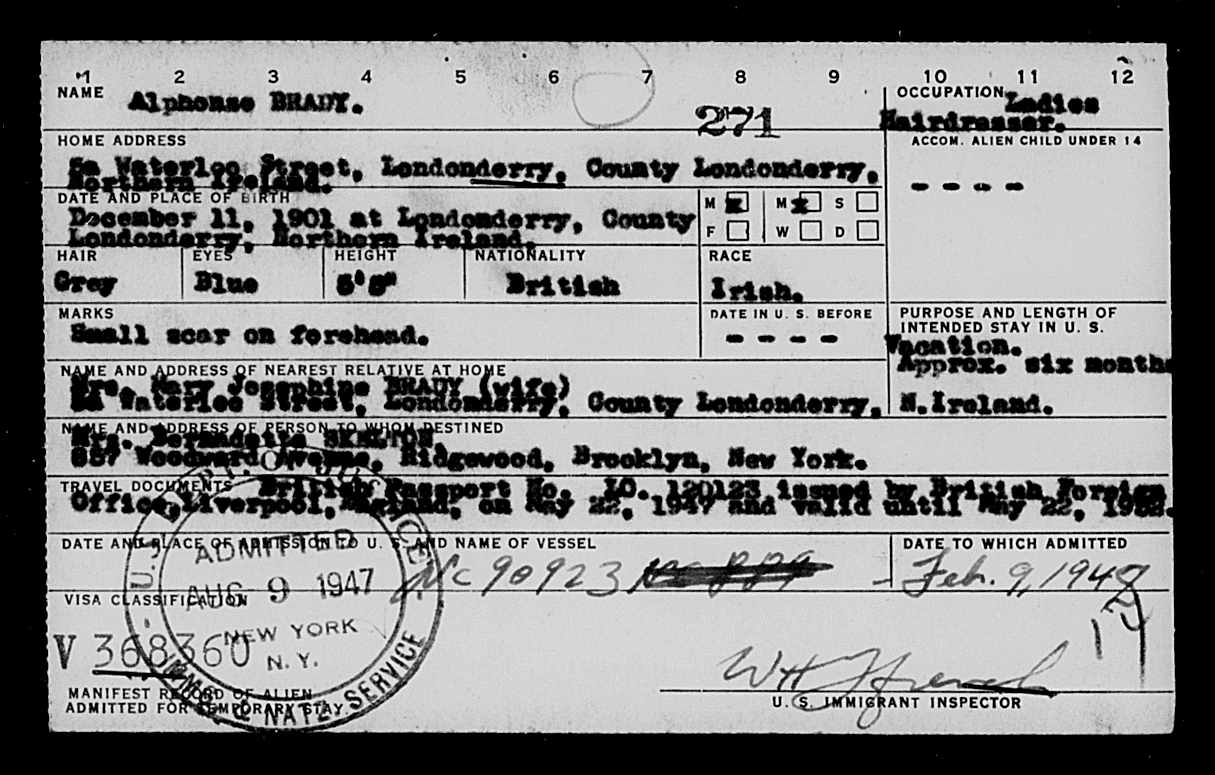 1 2 3 4 5 6 7 8 9 10 11 12
NAME Alphonse BRADY.
271
OCCUPATION Ladies
Hairdresser.
HOME ADDRESS
5a Waterloo Street, Londonderry, County Londonderry,
Northern Ireland.
ACCOM. ALIEN CHILD UNDER 14
- - - -
DATE AND PLACE OF BIRTH
December 11, 1901 at Londonderry, County
Londonderry, Northern Ireland.
M x M x S
F W D
HAIR EYES HEIGHT NATIONALITY RACE
Grey Blue 5'5" British Irish.
MARKS
Small scar on forehead.
DATE IN U. S. BEFORE
- - - -
PURPOSE AND LENGTH OF
INTENDED STAY IN U. S.
Vacation.
Approx. six months
NAME AND ADDRESS OF NEAREST RELATIVE AT HOME
Mrs. Mary Josephine BRADY (wife)
5a Waterloo Street, Londonderry, County Londonderry, N.Ireland.
NAME AND ADDRESS OF PERSON TO WHOM DESTINED
Mrs. Bernadette SKELTON,
657 Woodward Avenue, Ridgewood, Brooklyn, New York.
TRAVEL DOCUMENTS British Passport No. LO. 120123 issued by British Foreign
Office, Liverpool, England, on May 22, 1947 and valid until May 22, 1952.
DATE AND PLACE OF ADMISSION TO U. S. AND NAME OF VESSEL
Nc 90923
DATE TO WHICH ADMITTED
Feb. 9, 1948
U.S. DEPT. OF JUSTICE
ADMITTED
AUG 9 1947
NEW YORK
N. Y.
IMMIG. & NATZ. SERVICE
VISA CLASSIFICATION
V 368360
MANIFEST RECORD OF ALIEN
ADMITTED FOR TEMPORARY STAY.
U. S. IMMIGRANT INSPECTOR